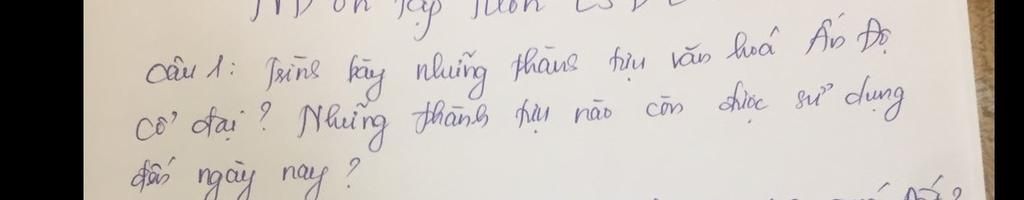 ôn tập môn
Câu 1: Trình bày những thành tựu văn hoá Ấn Độ
cổ đại? Những thành tựu nào còn được sử dụng
đến ngày nay?